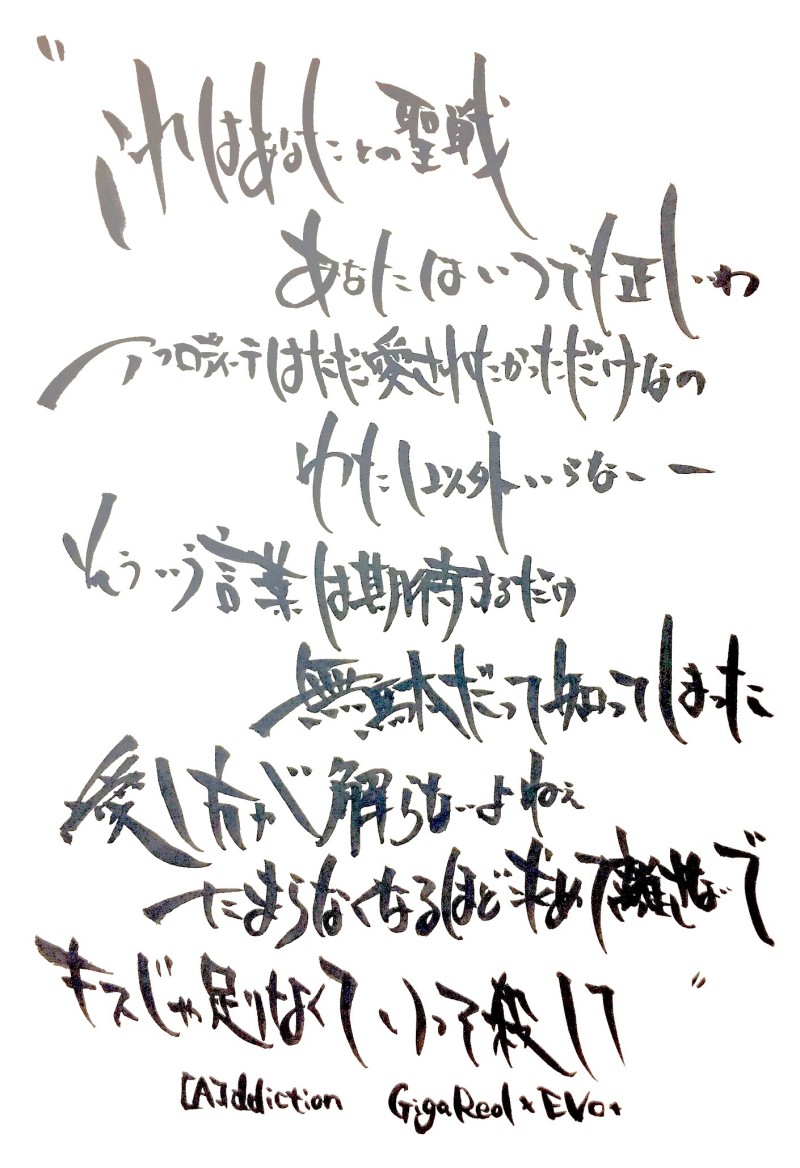 "これはあなたとの聖戦
あなたはいつでも正しいわ
アフロディーテはただ愛されたかっただけなの
わたし以外いらないー
そういう言葉は期待するだけ
無駄だって知ってしまった
愛し方が解らないよねぇ
たまらなくなるほど求めて離さないで
キスじゃ足りなくて いっそ殺して"
[A]ddiction GigaReol×EVO+